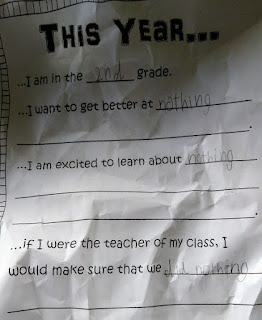 THIS YEAR...
...I am in the 2nd grade.
...I want to get better at nothing
.
...I am excited to learn about nothing
.
...if I were the teacher of my class, I
would make sure that we did nothing